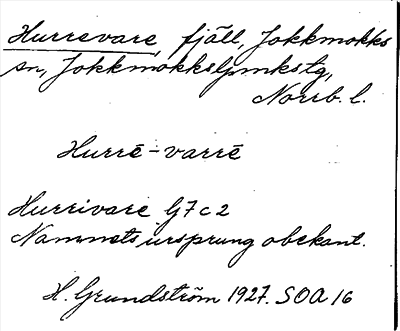 Hurrevare, fjäll, Jokkmokks
sn, Jokkmokkslpmkstg,
Norrb. l.
Hurrē-varrē
Hurrivare G7c2
Namnets ursprung obekant.
H. Grundström 1927. SOA 16